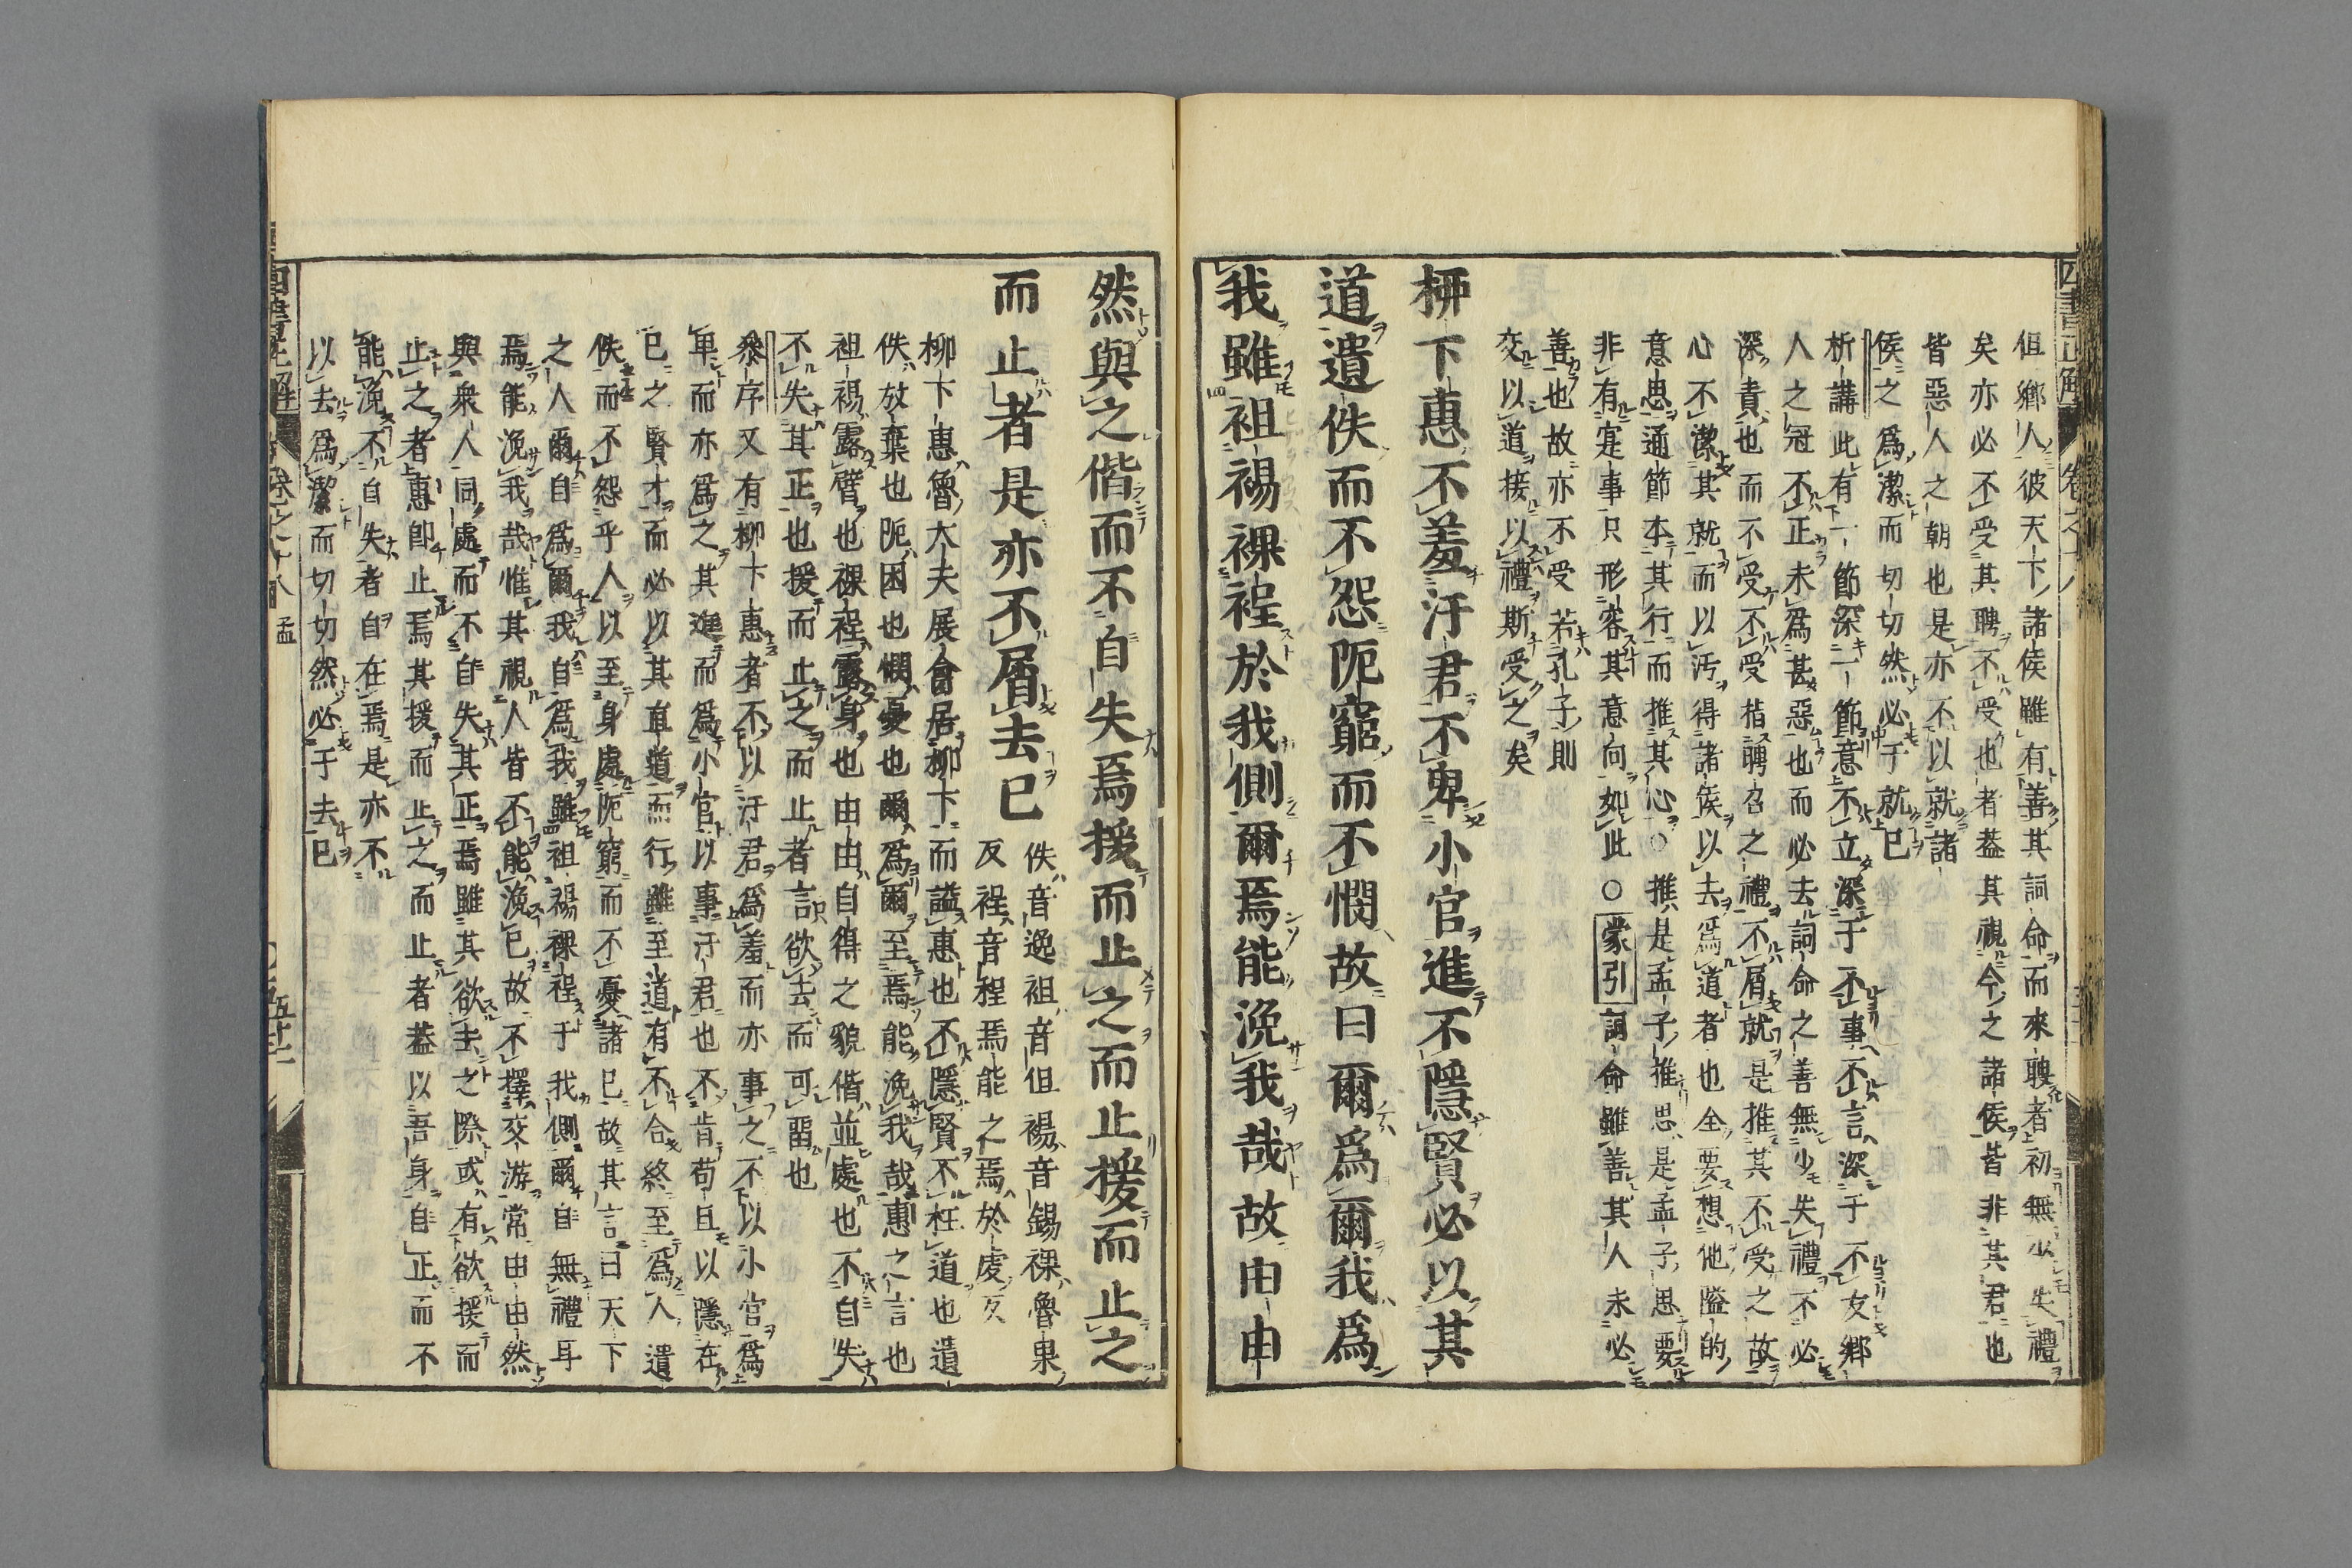 但鄉人彼天下諸侯雖有善其詞命而來聘者初無少失禮
矣亦必不受其聘不受也者葢其視今之諸侯皆非其君也
皆惡人之朝也是亦不以就諸
侯之爲潔而切切然必于就已
析講此有一節深一節意不立深于不事不言深于不友鄉
人之冠不正未爲甚惡也而必去詞命之善無少失禮不必
深責也而不受不受指聘召之禮不屑就是推其不受之故
心不潔其就而以汚得諸侯以去爲道者也全要想他隘的
意思通節本其行而推其心○推是孟子推思是孟子思要
非有寔事只形容其意向如此○蒙引詞命雖善其人未必
善也故亦不受若孔子則
交以道接以禮斯受之矣
柳下惠不羞汙君不卑小官進不隱賢必以其
道遺佚而不怨阨窮而不憫故曰爾爲爾我爲
我雖袒裼裸裎於我側爾焉能浼我哉故由由
然與之偕而不自失焉援而止之而止援而止之
而止者是亦不屑去已
佚音逸袒音但裼音錫裸魯果
反裎音程焉能之焉於虔反
柳下惠魯大夫展禽居柳下而謚惠也不隱賢不枉道也遺
佚放棄也阨困也憫憂也爾爲爾至焉能浼我哉惠之言也
袒裼露臂也裸裎露身也由由自得之貌偕並處也不自失
不失其正也援而止之而止者言欲去而可留也
叅序又有柳下惠者不以汙君爲羞而亦事之不以小官爲
卑而亦爲之其進而爲小官以事汙君也不肯苟且以隱在
已之賢才而必以其直道而行雖至道有不合終至爲人遺
佚而不怨乎人以至身處阨窮而不憂諸已故其言曰天下
之人爾自爲爾我自爲我雖袒裼裸裎于我側爾自無禮耳
焉能浼我哉惟其視人皆不能浼已故不擇交游常由由然
與衆人同處而不自失其正焉雖其欲去之際或有欲援而
止之者惠卽止焉其援而止之而止者葢以吾身自正而不
能浼不自失者自在焉是亦不
以去爲潔而切切然必于去已